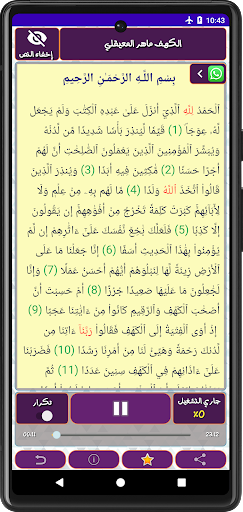 10:43
إخفاء النص
الكهف ماهر المعيقلي
بِسْمِ اللَّهِ الرَّحْمَـٰنِ الرَّحِيمِ
الْحَمْدُ لِلَّهِ الَّذِي أَنزَلَ عَلَىٰ عَبْدِهِ الْكِتَابَ وَلَمْ يَجْعَل
لَّهُ عِوَجًا (1) قَيِّمًا لِّيُنذِرَ بَأْسًا شَدِيدًا مِّن لَّدُنْهُ
وَيُبَشِّرَ الْمُؤْمِنِينَ الَّذِينَ يَعْمَلُونَ الصَّالِحَاتِ أَنَّ لَهُمْ
أَجْرًا حَسَنًا (2) مَّاكِثِينَ فِيهِ أَبَدًا (3) وَيُنذِرَ الَّذِينَ
قَالُوا اتَّخَذَ اللَّهُ وَلَدًا (4) مَّا لَهُم بِهِ مِنْ عِلْمٍ وَلَا
لِآبَائِهِمْ كَبُرَتْ كَلِمَةً تَخْرُجُ مِنْ أَفْوَاهِهِمْ إِن يَقُولُونَ
إِلَّا كَذِبًا (5) فَلَعَلَّكَ بَاخِعٌ نَّفْسَكَ عَلَىٰ آثَارِهِمْ إِن لَّمْ
يُؤْمِنُوا بِهَٰذَا الْحَدِيثِ أَسَفًا (6) إِنَّا جَعَلْنَا مَا عَلَى
الْأَرْضِ زِينَةً لَّهَا لِنَبْلُوَهُمْ أَيُّهُمْ أَحْسَنُ عَمَلًا (7) وَإِنَّا
لَجَاعِلُونَ مَا عَلَيْهَا صَعِيدًا جُرُزًا (8) أَمْ حَسِبْتَ أَنَّ
أَصْحَابَ الْكَهْفِ وَالرَّقِيمِ كَانُوا مِنْ آيَاتِنَا عَجَبًا (9)
إِذْ أَوَى الْفِتْيَةُ إِلَى الْكَهْفِ فَقَالُوا رَبَّنَا آتِنَا مِن
لَّدُنكَ رَحْمَةً وَهَيِّئْ لَنَا مِنْ أَمْرِنَا رَشَدًا (10) فَضَرَبْنَا
عَلَىٰ آذَانِهِمْ فِي الْكَهْفِ سِنِينَ عَدَدًا (11) ثُمَّ
تكرار
جاري التشغيل
٪0
00:11
23:12